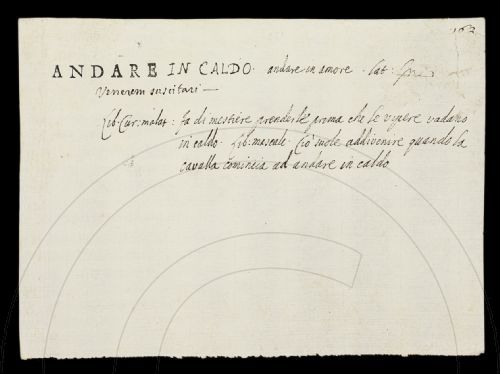 163
ANDARE IN CALDO. andare in amore. Lat:
Venerem suscitari —
Lib. Cur. malat: fa di mestiere prenderle prima che le vipere vadano
in caldo. Lib. mascalc. Ciò suole addivenire quando la
cavalla comincia ad andare in caldo